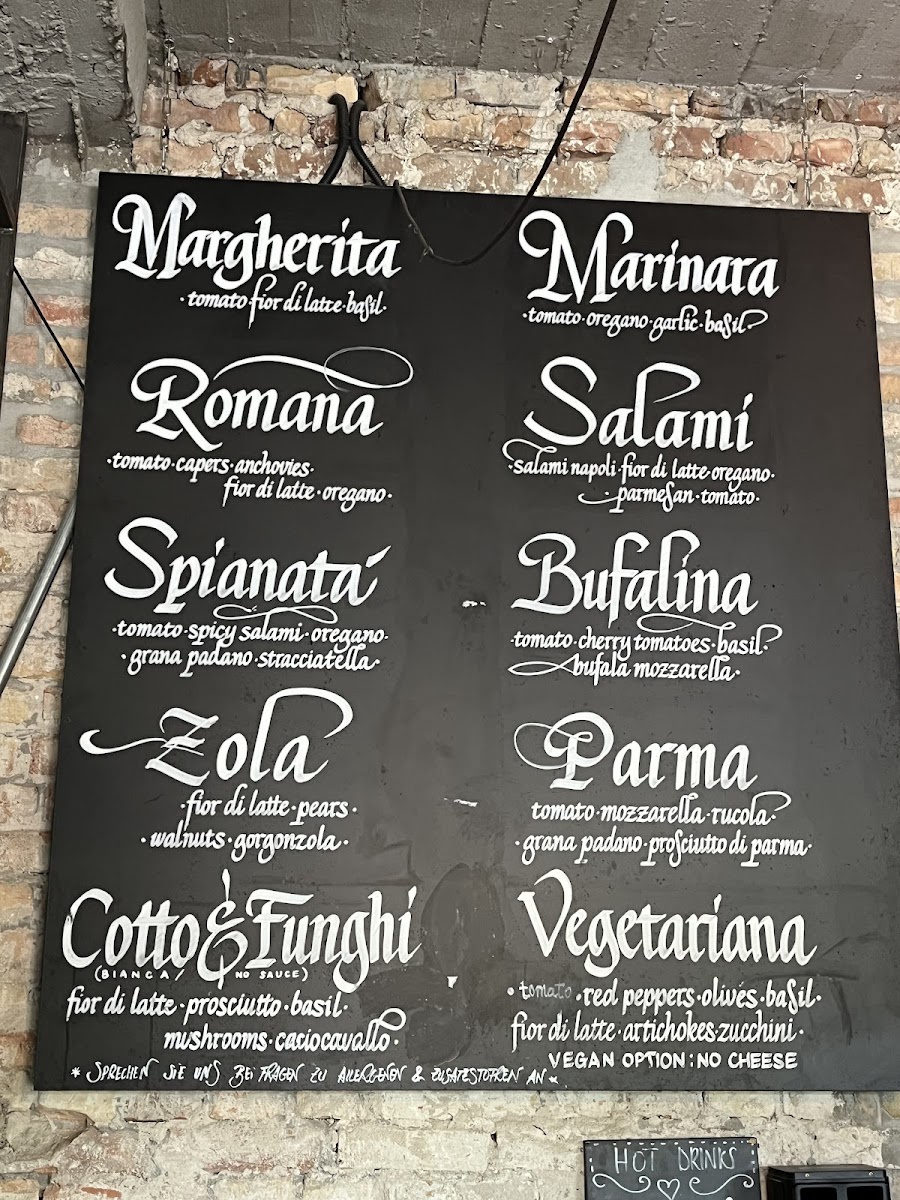 Margherita
·tomato fior di latte·basil·
Marinara
·tomato·oregano·garlic·basil
Romana
·tomato·capers·anchovies·
fior di latte·oregano·
Salami
·Salami napoli·fior di latte·oregano·
·parmesan·tomato·
Spianata
·tomato·spicy salami·oregano·
·grana padano·stracciatella·
Bufalina
·tomato·cherry tomatoes·basil·
bufala mozzarella·
Zola
·fior di latte·pears·
·walnuts·gorgonzola·
Parma
tomato·mozzarella·rucola·
·grana padano·prosciutto di parma·
Cotto & Funghi
(BIANCA/ NO SAUCE)
fior di latte·prosciutto·basil·
mushrooms·caciocavallo·
Vegetariana
·tomato·red peppers·olives·basil·
fior di latte·artichokes·zucchini·
VEGAN OPTION: NO CHEESE
* SPRECHEN SIE UNS BEI FRAGEN ZU ALLERGENEN & ZUSATZSTOFFEN AN *
HOT DRINKS